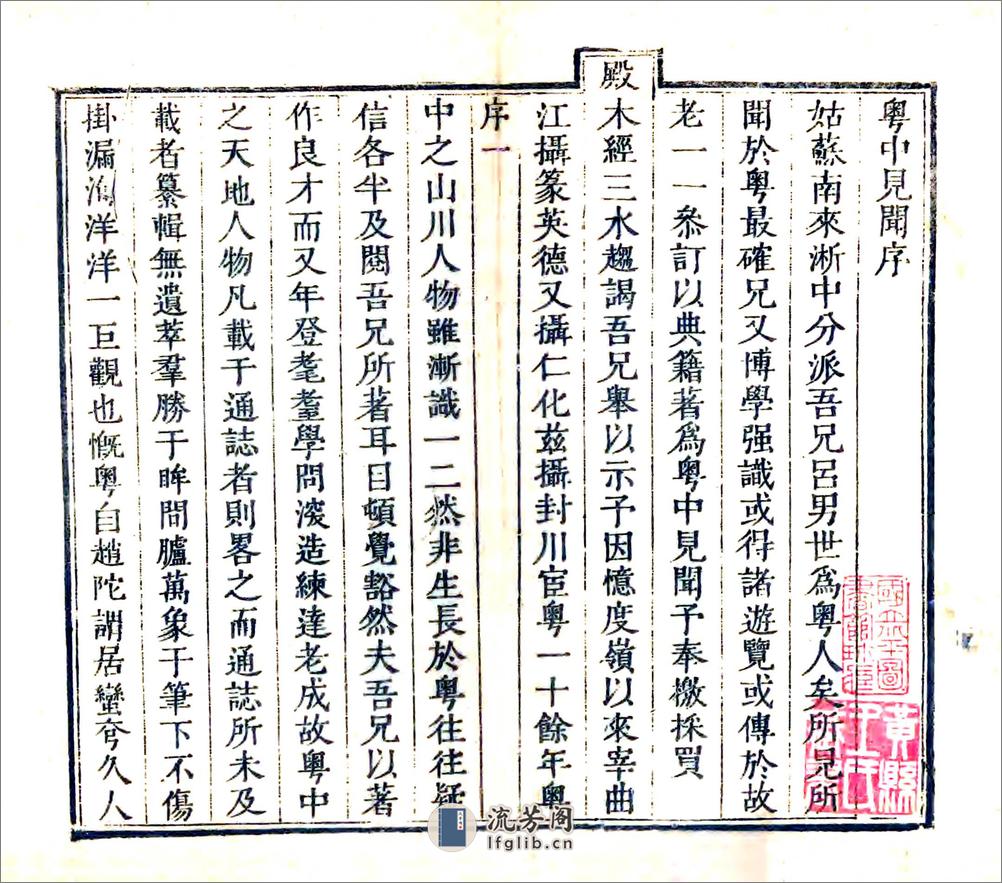 粵中見聞序
姑蘇南來淅中分派吾兄呂男世爲粵人矣所見所
聞於粵最確兄又博學强識或得諸遊覽或傳於故
老一一叅訂以典籍著爲粵中見聞予奉檄採買
殿
木經三水趨謁吾兄舉以示予因憶度嶺以來宰曲
江攝篆英德又攝仁化茲攝封川宦粵一十餘年粵
序一
中之山川人物雖漸識一二然非生長於粵往往疑
信各半及閱吾兄所著耳目頓覺豁然夫吾兄以著
作良才而又年登耄耋學問湥造練達老成故粵中
之天地人物凡載于通誌者則畧之而通誌所未及
載者纂輯無遺萃羣勝于眸間臚萬象于筆下不傷
掛漏洵洋洋一巨觀也慨粵自趙陀謂居蠻夸久人
黃縣王氏
流芳阁
lfglib.cn